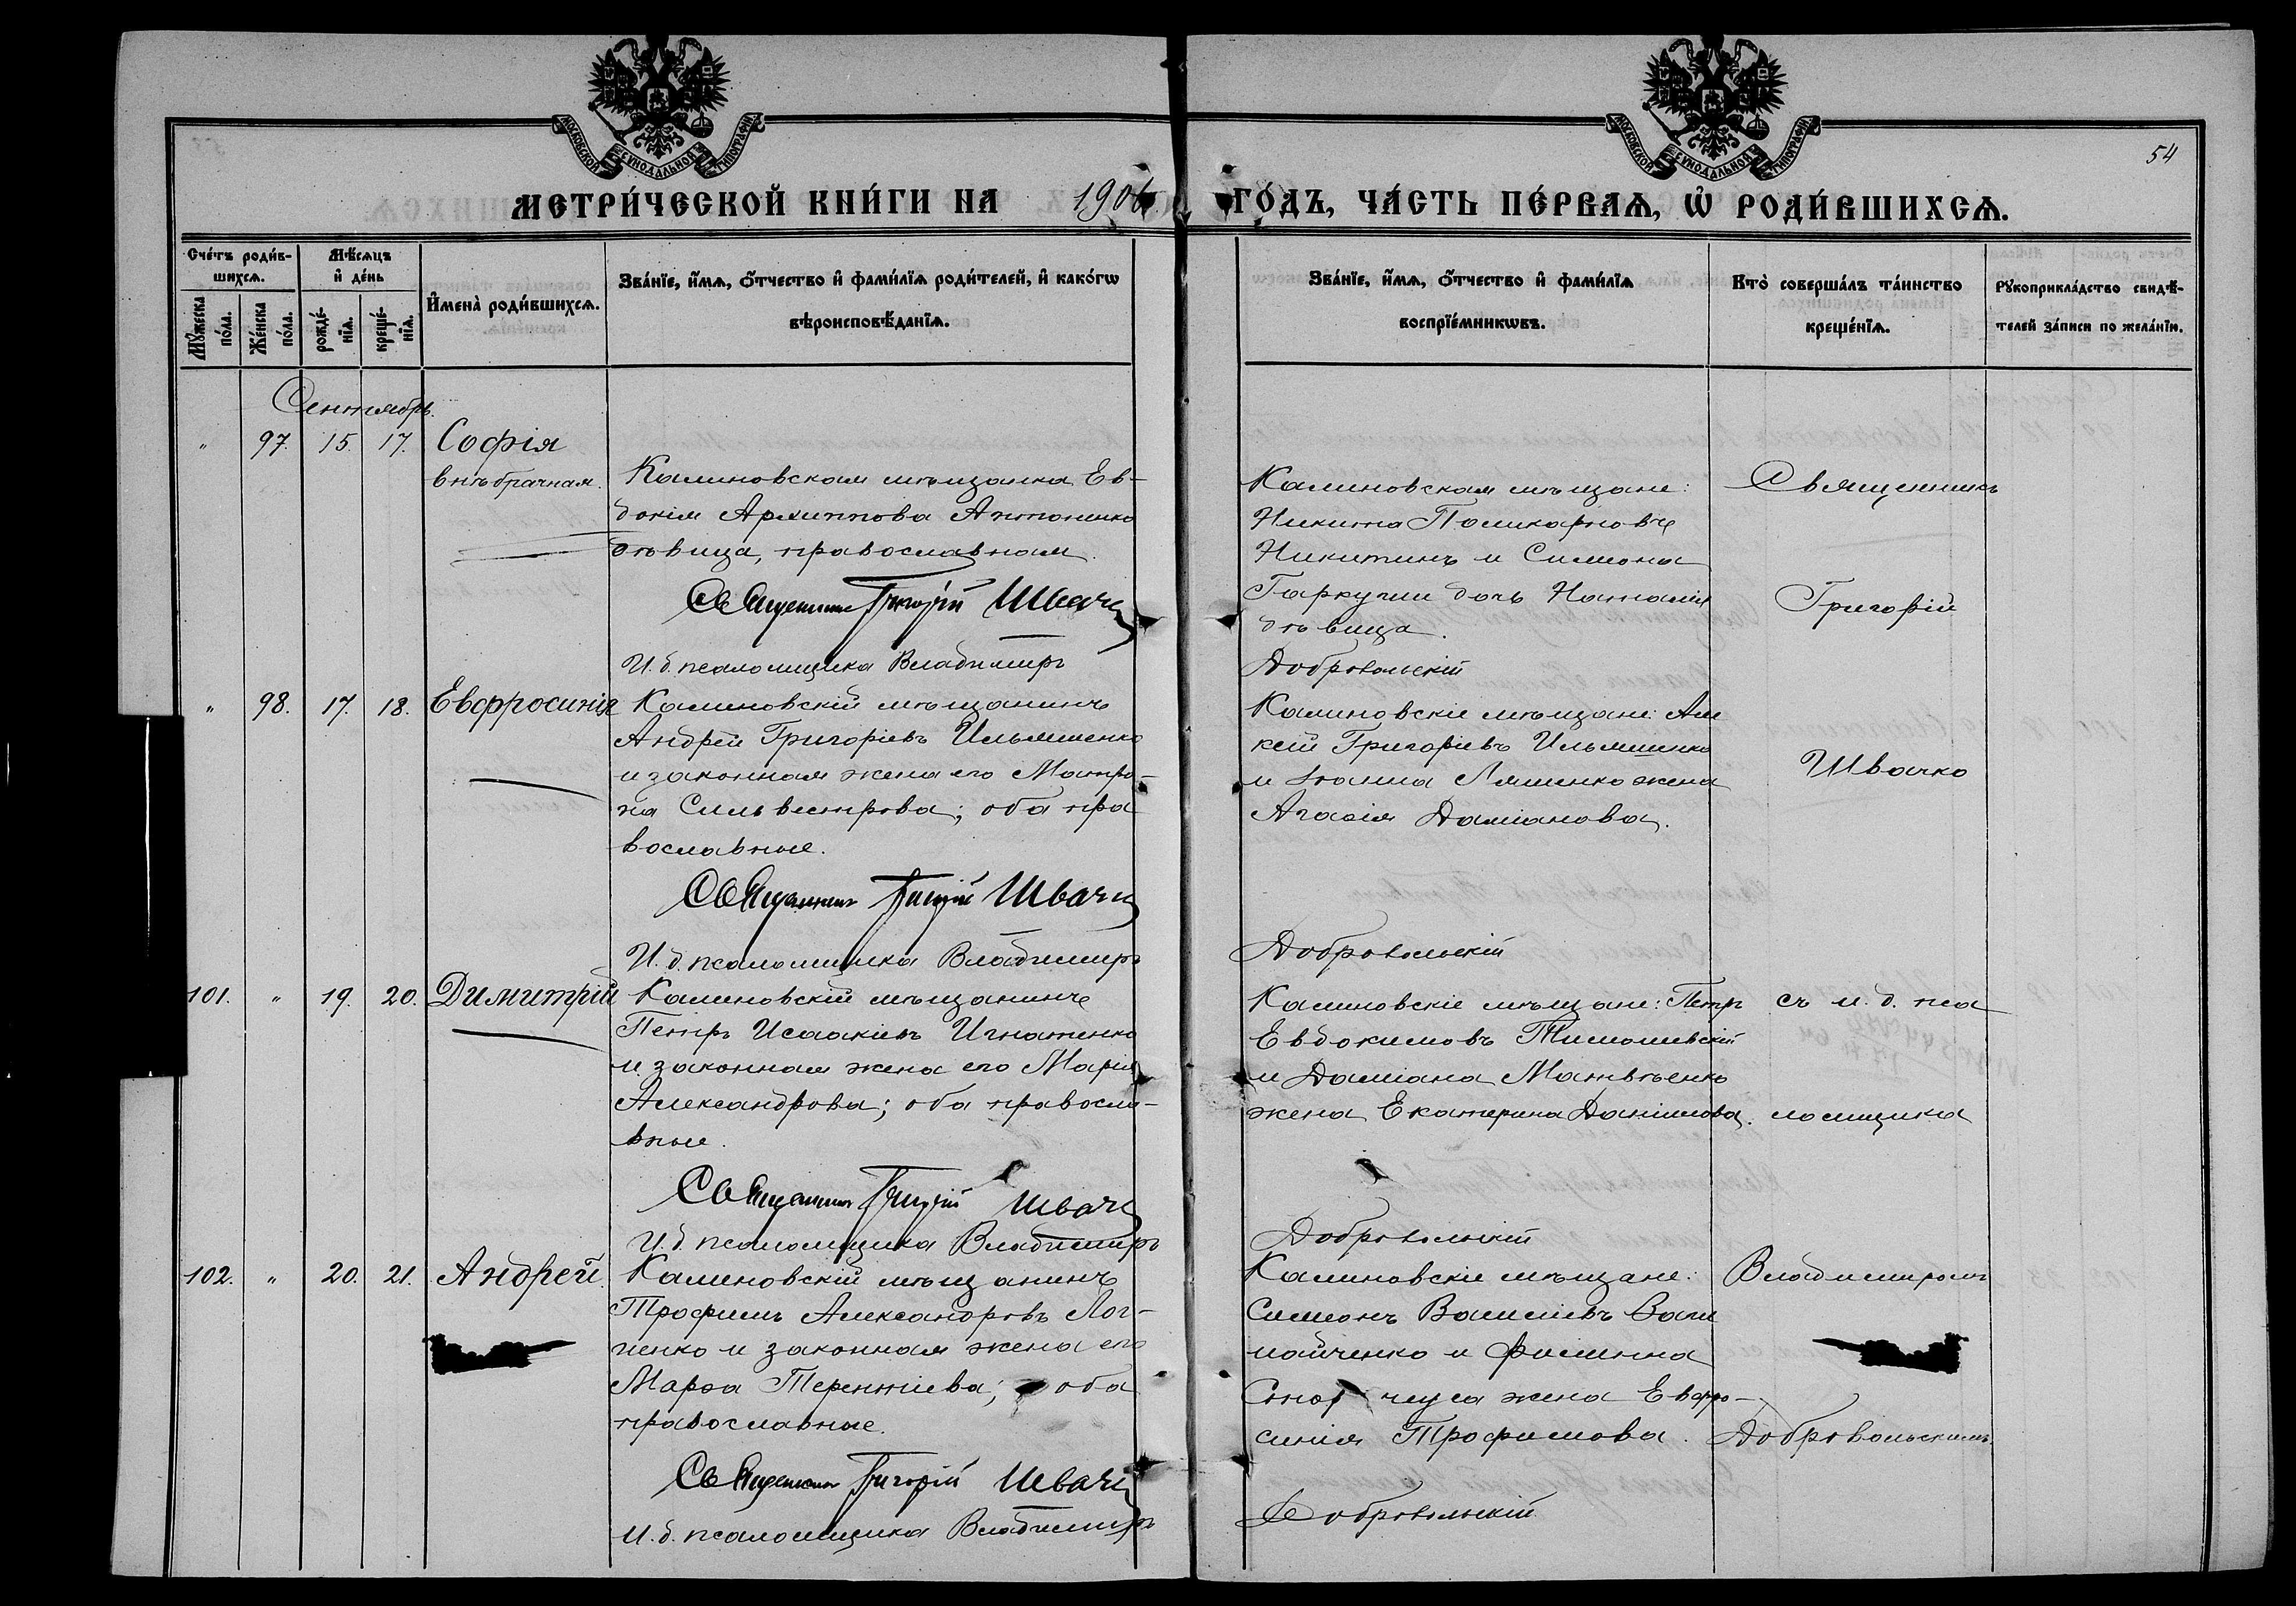 МОСКОВСКОЙ СѴНОДАЛЬНОЙ ТИПОГРАФІИ
МОСКОВСКОЙ СѴНОДАЛЬНОЙ ТИПОГРАФІИ
54
МЕТРИ́ЧЕСКОЙ КНИ́ГИ НА 1906 ГО́ДЪ, ЧА́СТЬ ПЕ́РВАѦ, Ѡ҆ РОДИ́ВШИХСѦ.
Сче́тъ роди́в-
шихсѧ.
Мꙋ́жеска по́ла.
Же́нска по́ла.
Мѣ́сѧцъ
и҆ де́нь
рожде́-нїѧ.
креще́-нїѧ.
И҆мена̀ роди́вшихсѧ.
Зва́нїе, и҆́мѧ, ѻ҆́тчество и҆ фами́лїѧ роди́телей, и҆ како́гѡ
вѣроисповѣ́данїѧ.
Зва́нїе, и҆́мѧ, ѻ҆́тчество и҆ фами́лїѧ
воспрїе́мникѡвъ.
Кто̀ соверша́лъ та́инство
креще́нїѧ.
Рꙋкоприкла́дство свидѣ́-
телей за́писи по жела́нїи.
Сентябрь.
" 97. 15. 17. Софія
внѣбрачная.
Калиновская мѣщанка Ев-
докія Архиппова Антоненко
дѣвица, православная.
Священникъ Григорій Швачко
И. д. псаломщика Владимиръ
Калиновская мѣщане:
Никита Поликарповъ
Никитинъ и Симеона
Гаркуши дочь Наталія
дѣвица.
Добровольскій
Священникъ
Григорій
Швачко
съ и. д. пса
ломщика
Владимиромъ
Добровольскимъ.
" 98. 17. 18. Евфросинія
Калиновскій мѣщанинъ
Андрей Григоріевъ Ильяшенко
и законная жена его Матро-
на Сильвестрова; оба пра
вославные.
Священникъ Григорій Швачко
И. д. псаломщика Владимиръ
Калиновскіе мѣщане: Але
ксій Григоріевъ Ильяшенко
и Іоанна Ляшенко жена
Агафія Даміанова.
Добровольскій
101. " 19. 20. Димитрій
Калиновскій мѣщанинъ
Петръ Исаакіевъ Игнатенко
и законная жена его Марія
Александрова; оба правосла-
вные.
Священникъ Григорій Швачко
И. д. псаломщика Владимиръ
Калиновскіе мѣщане: Петръ
Евдокимовъ Тимошевскій
и Даміана Матвѣенко
жена Екатерина Даніилова.
Добровольскій
102. " 20. 21. Андрей.
Калиновскій мѣщанинъ
Трофимъ Александровъ Лог-
ненко и законная жена его
Марѳа Терентіева; оба
православные.
Священникъ Григорій Швачко
И. д. псаломщика Владимиръ
Калиновскіе мѣщане:
Симеонъ Василіевъ
и Филиппа
жена Евфро-
синія Трофимова.
Добровольскій